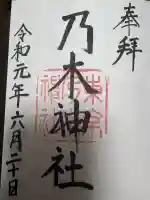 奉拝
乃木神社
令和元年六月二十日